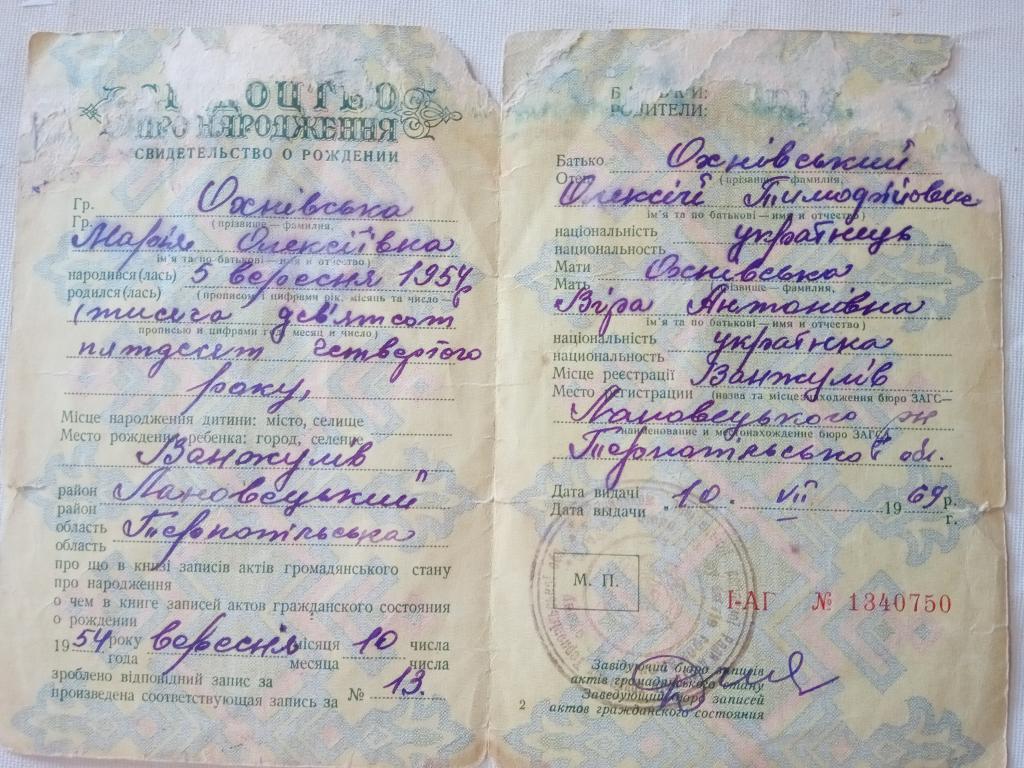 ПРО НАРОДЖЕННЯ
СВИДЕТЕЛЬСТВО О РОЖДЕНИИ
Гр. Охнівська
Гр. (прізвище — фамилия,
Марія Олексіївна
ім'я та по батькові — имя и отчество)
народився(лась) 5 вересня 1954
родился(лась) (прописом і цифрами рік, місяць та число —
(тисяча дев'ятсот
прописью и цифрами год, месяц и число)
пятдесят четвертого
року,
Місце народження дитини: місто, селище
Место рождения ребенка: город, селение
Ванжулів
район Лановецький
район
область Тернопільська
область
про що в книзі записів актів громадянського стану
про народження
о чем в книге записей актов гражданского состояния
о рождении
1954 року вересня місяця 10 числа
года месяца числа
зроблено відповідний запис за
произведена соответствующая запись за № 13.
РОДИТЕЛИ:
Батько Охнівський
Отец (прізвище — фамилия,
Олексій Тимофійович
ім'я та по батькові — имя и отчество)
національність українець
национальность
Мати Охнівська
Мать прізвище — фамилия,
Віра Антонівна
ім'я та по батькові — имя и отчество)
національність українка
национальность
Місце реєстрації Ванжулів
Место регистрации (назва та місцезнаходження бюро ЗАГС —
Лановецького
наименование и местонахождение бюро ЗАГС)
Тернопільської обл.
Дата видачі 10. VII 1969 р.
Дата выдачи г.
М. П.
І-АГ № 1340750
Завідуючий бюро записів
актів громадянського стану
Заведующий бюро записей
актов гражданского состояния
2